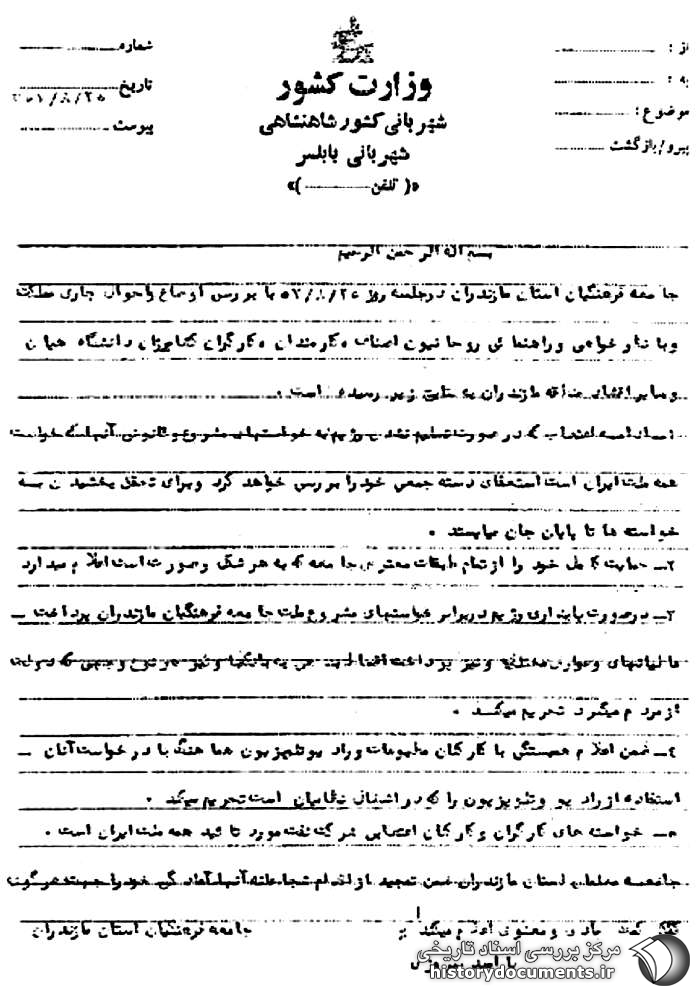 از :
به :
موضوع :
پیرو/بازگشت
وزارت کشور
شهربانی کشور شاهنشاهی
شهربانی بابلسر
«( تلفن )»
شماره
تاریخ ۳۰۱/۸/۲۵
پیوست
بسم الله الرحمن الرحیم
جامعه فرهنگیان استان مازندران در جلسه روز با بررسی اوضاع و احوال جاری مملکت
و با نظر خواهی و راهنمائی روحانیون اصناف کارمندان کارگران کشاورزان دانشگاهیان
و سایر اقشار مازندران به نتایج زیر رسیده است .
۱ـ ادامه اعتصاب که در صورت تسلیم نشدن رژیم به خواستهای مشروع و قانونی آنها که خواست
همه ملت ایران است استعفای دسته جمعی خود را بررسی خواهد کرد و برای تحقق بخشیدن به
خواسته ها تا پایان جان میایستد .
۲ـ حمایت کامل خود را از تمام طبقات معترض جامعه که به هر شکل و صورت است اعلام میدارد
۳ـ در صورت پایداری رژیم در برابر خواستهای مشروع ملت جامعه فرهنگیان مازندران پرداخت ـ
مالیاتهای و عوارض مختلف و نیز پرداخت به بانکها و نیز هر نوع وجهی که دولت
از مردم میگیرد تحریم میکند .
۴ـ ضمن اعلام همبستگی با کارکنان مطبوعات و رادیو تلویزیون هماهنگ با درخواست آنان ـ
استفاده از رادیو و تلویزیون را که در اشغال نظامیان است تحریم میکند .
۵ـ خواسته های کارگران و کارکنان اعتصابی شرکت نفت مورد تائید همه ملت ایران است .
جامعه معلمان استان مازندران ضمن تمجید از اقدام شجاعانه آنها آمادگی خود را جهت هرگونه
کمک مادی و معنوی اعلام میکند جامعه فرهنگیان استان مازندران
با امید پیروزی
مرکز بررسی اسناد تاریخی
historydocuments.ir